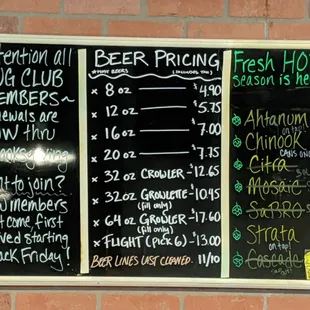 tention all
UG CLUB
EMBERS~
newals are
ow thru
nksgiving
nt to join?
w members
t come, first
ved starting
ack Friday!
BEER PRICING
*MOST BEERS (INCLUDES TAX)
x 8 oz $4.90
x 12 oz $5.75
x 16 oz 7.00
x 20 oz $7.75
x 32 oz CROWLER - 12.65
x 32 oz GROWLETTE - 10.45
(fill only)
x 64 oz GROWLER - 17.60
(fill only)
x FLIGHT (PICK 6) - 13.00
BEER LINES LAST CLEANED: 11/10
Fresh HO
season is he
Ahtanum
on tap!
Chinook
CANS ON
Citra
Mosaic
SaBRO
Strata
on tap!
Cascade